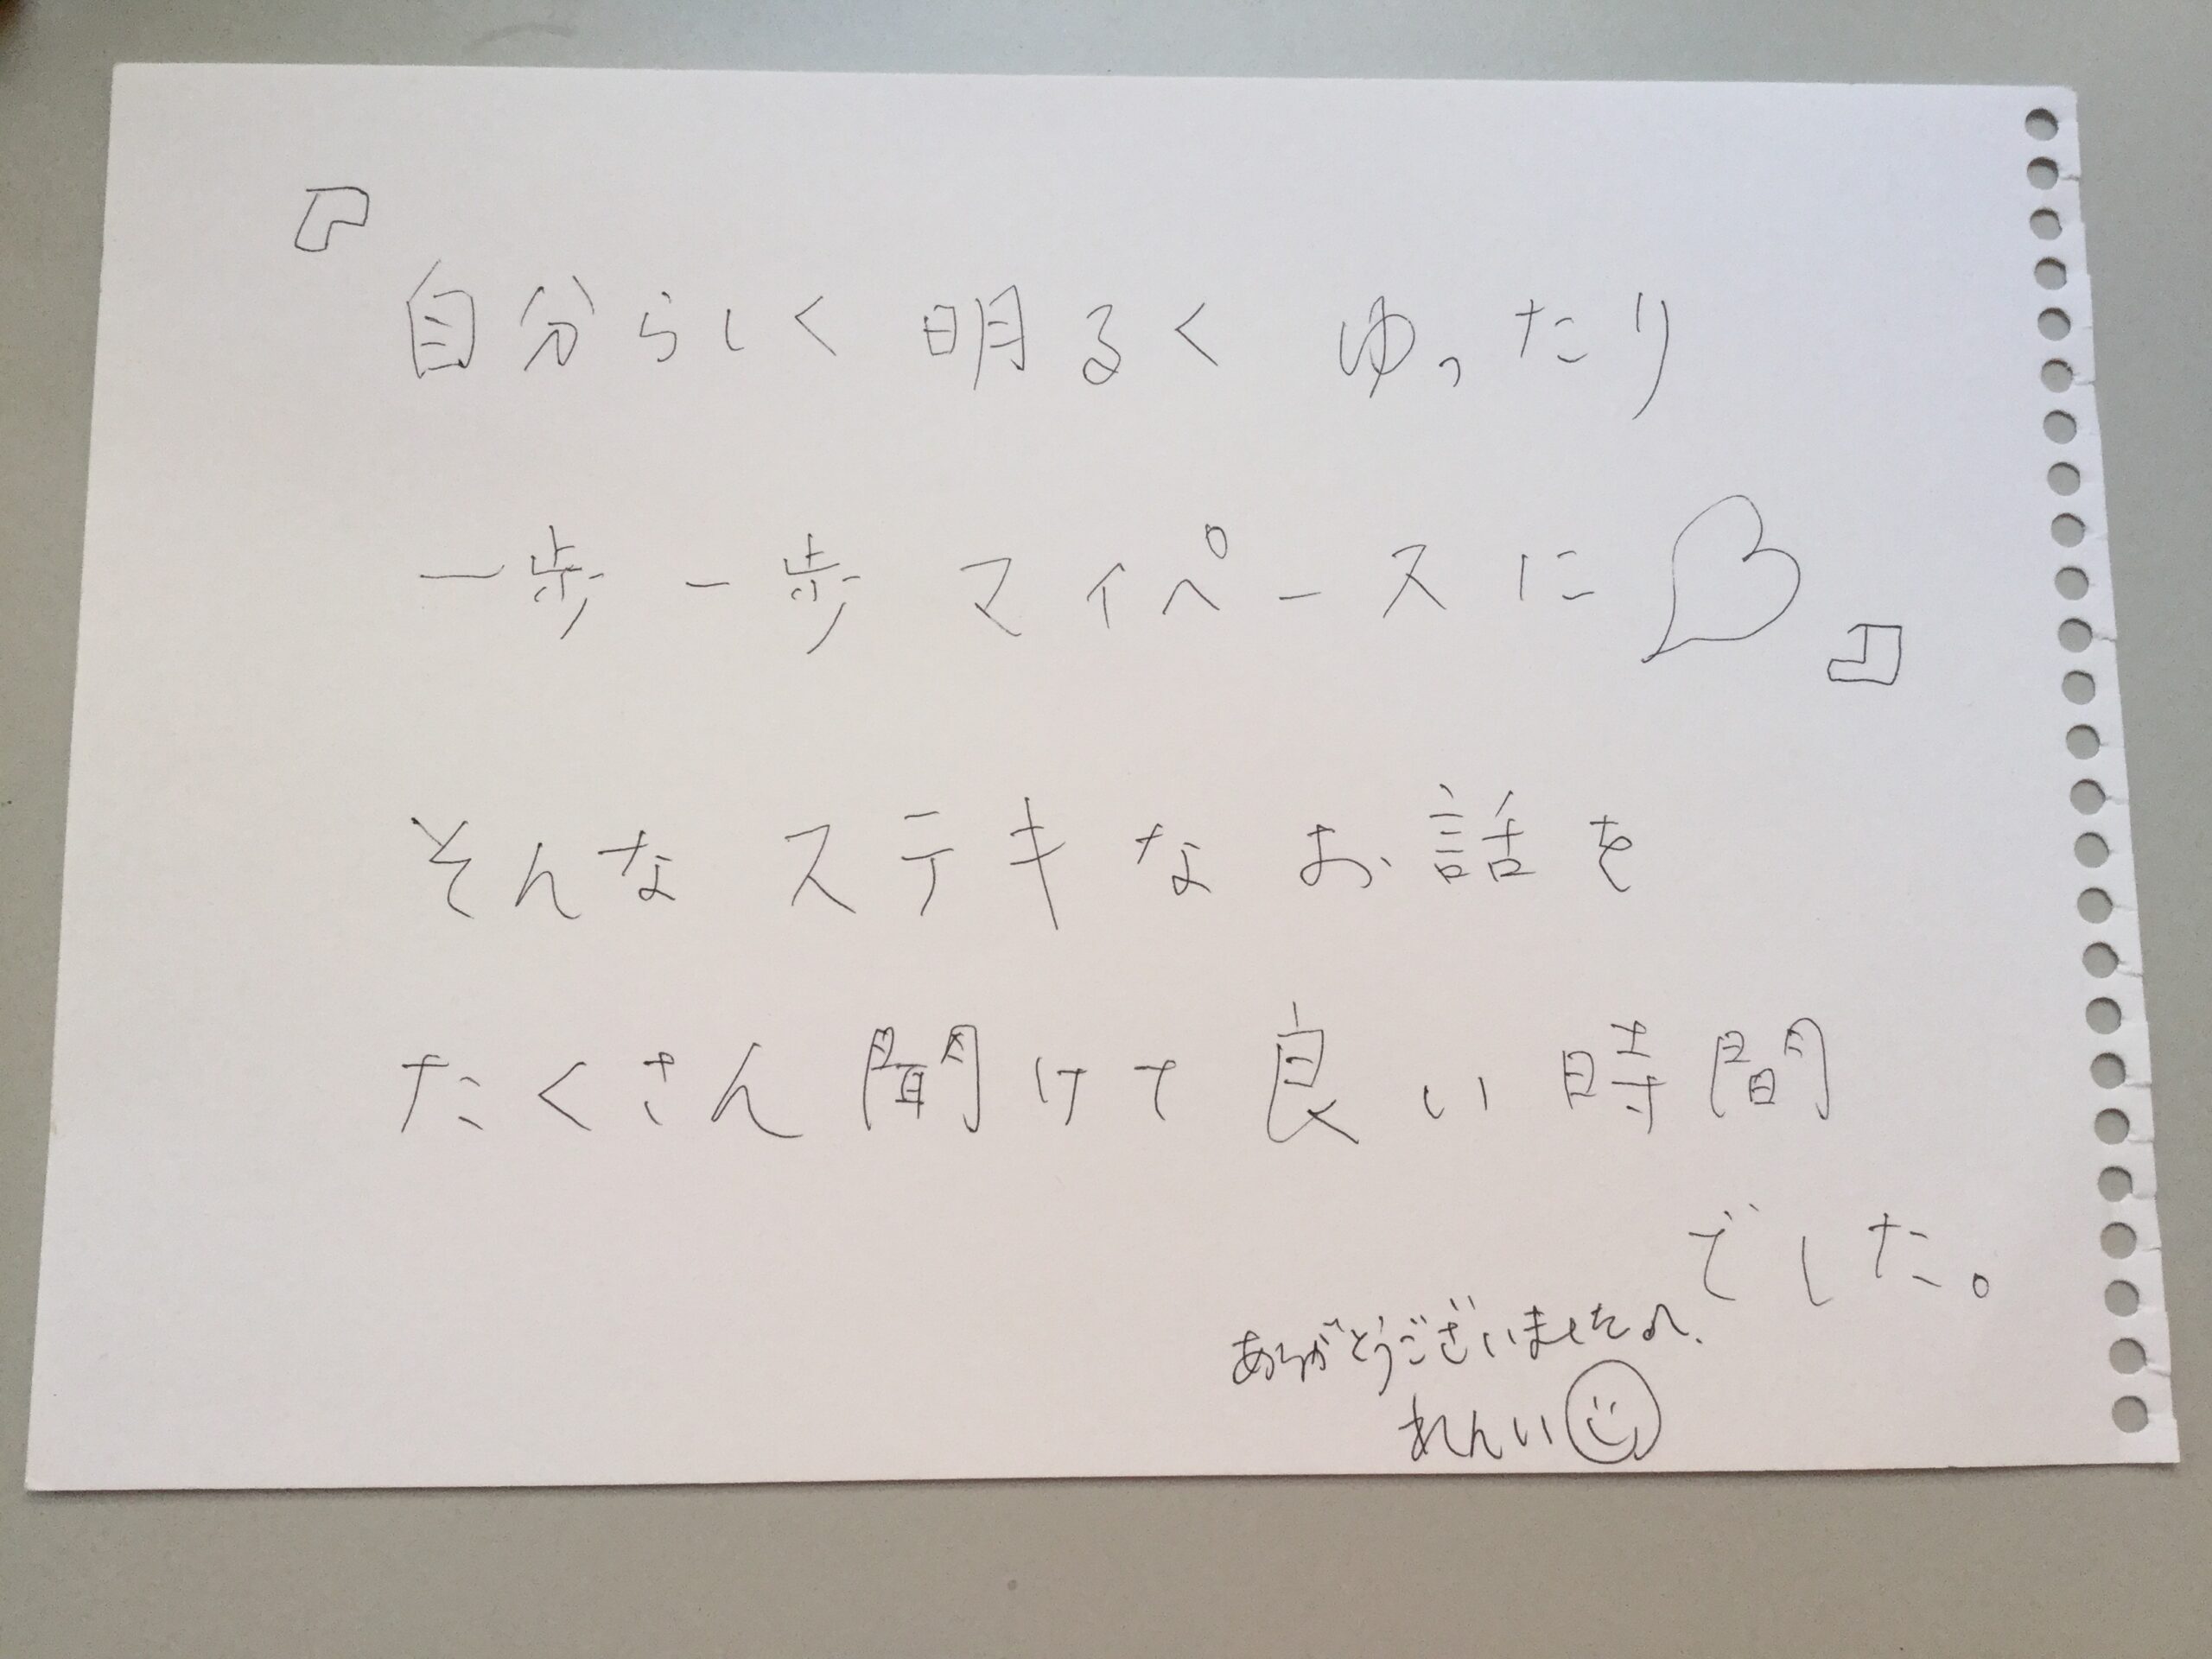 『自分らしく 明るく ゆったり
一歩 一歩 マイペースに♡』
そんな ステキな お話を
たくさん 聞けて 良い 時間
でした。
ありがとうございました
れんい